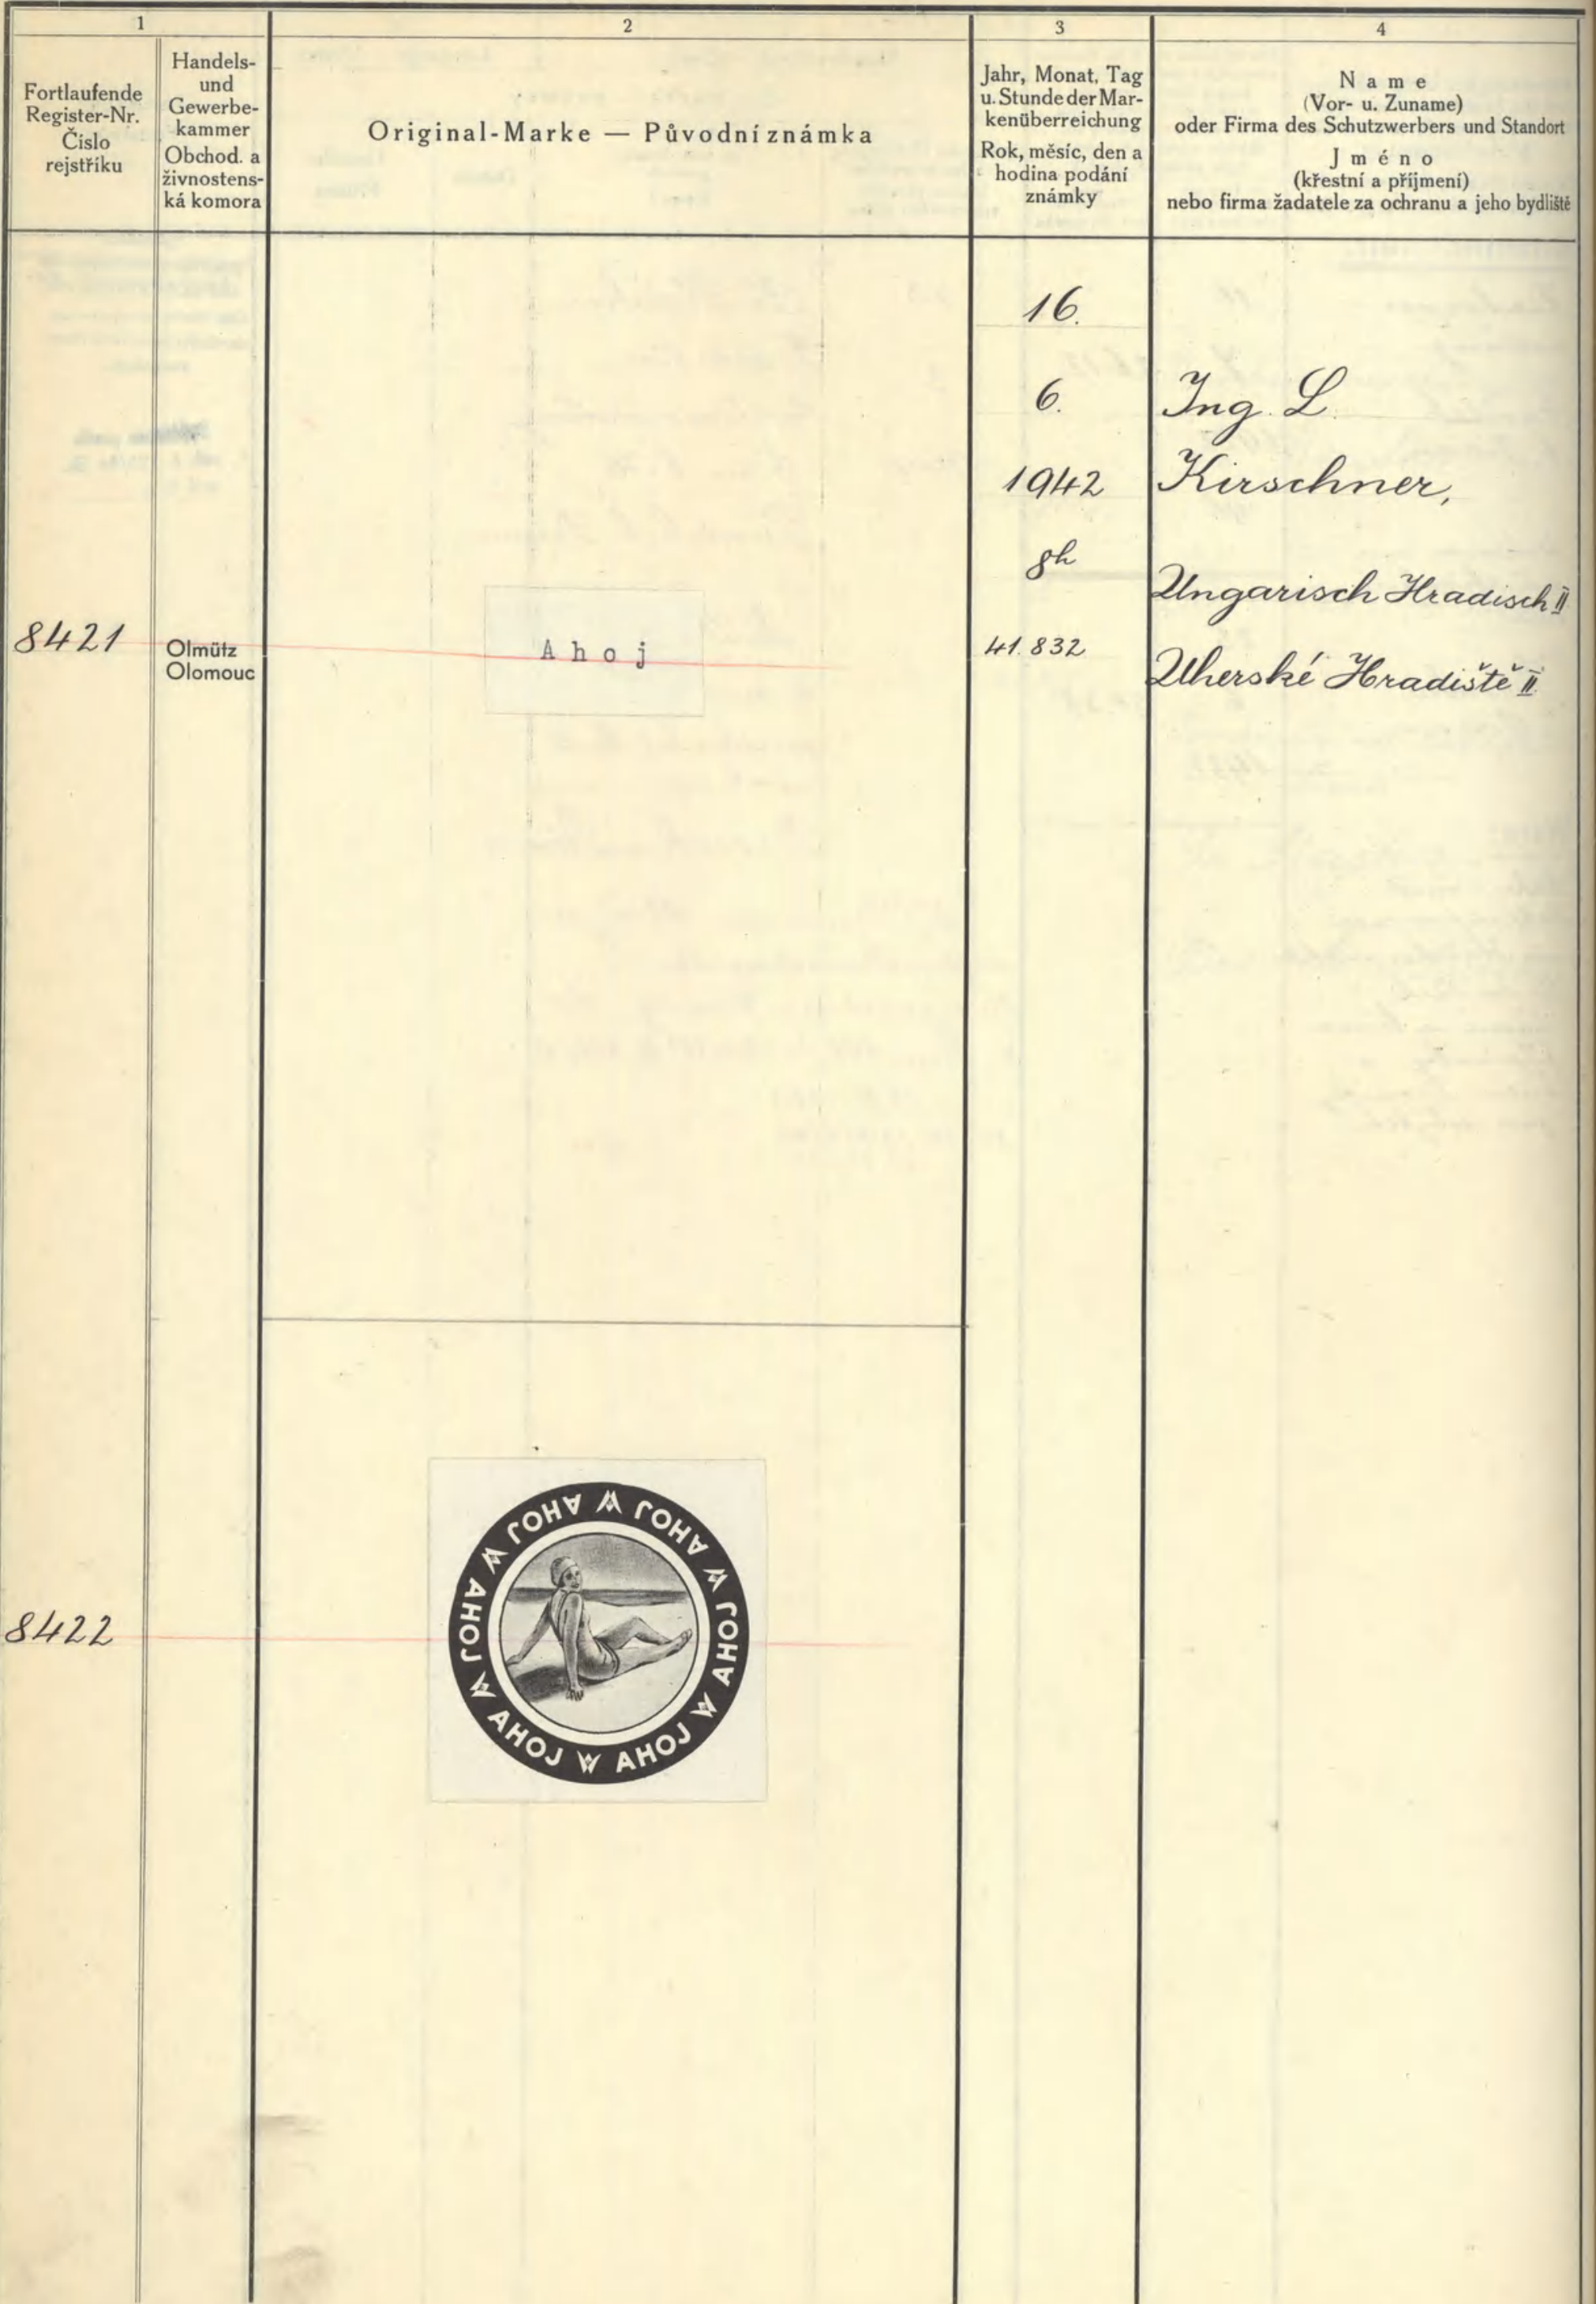 1
2
3
4
Fortlaufende
Register-Nr.
Číslo
rejstříku
Handels-
und
Gewerbe-
kammer
Obchod. a
živnostens-
ká komora
Original-Marke — Původní známka
Jahr, Monat, Tag
u. Stunde der Mar-
kenüberreichung
Rok, měsíc, den a
hodina podání
známky
Name
(Vor- u. Zuname)
oder Firma des Schutzwerbers und Standort
Jméno
(křestní a příjmení)
nebo firma žadatele za ochranu a jeho bydliště
16.
6.
1942
8h
41.832
Ing. L.
Kirschner,
Ungarisch Hradisch II
Uherské Hradiště II.
8421
Olmütz
Olomouc
Ahoj
8422
AHOJ W AHOJ W AHOJ W AHOJ W AHOJ W AHOJ W